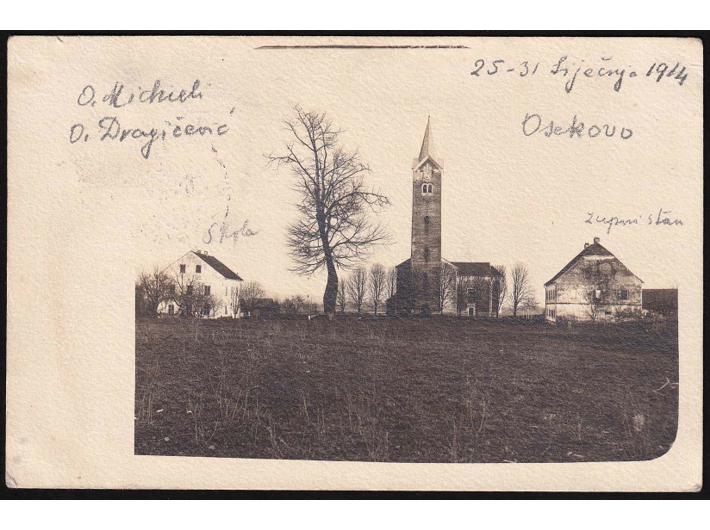 O. Michieli
O. Dragičević
25-31 Siječnja 1914
Osekovo
Skola
župni stan